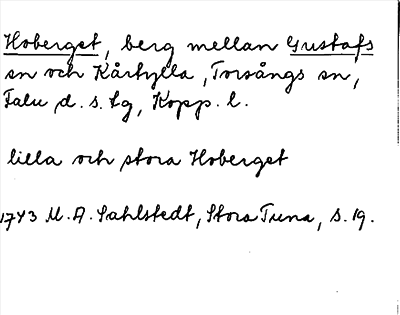 Hoberget, berg mellan Gustafs
sn och Kårtylla, Torsångs sn,
Falu d. s. lg, Kopp. l.
lilla och stora Hoberget
1743 M. A. Sahlstedt, Stora Tuna, s. 19.